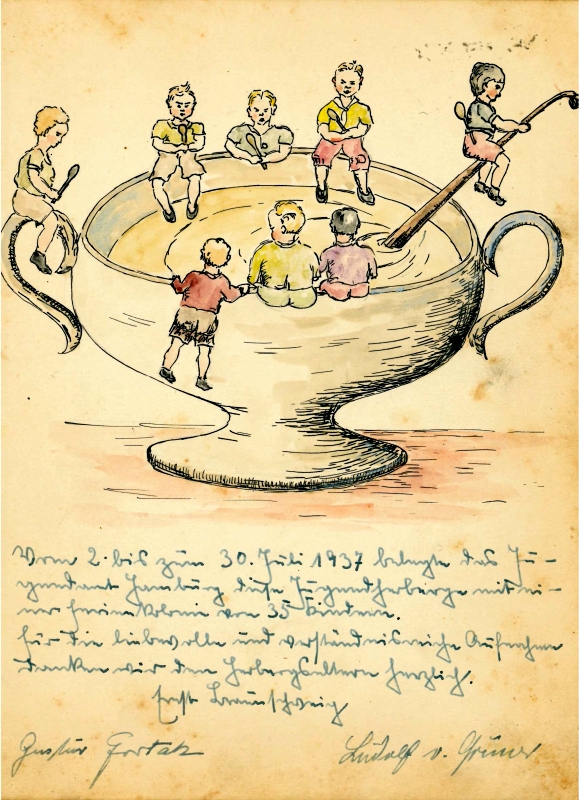 Vom 2. bis zum 30. Juli 1937 belegte das Ju-
gendamt Hamburg diese Jugendherberge mit ei-
ner Ferienkolonie von 35 Kindern.
Für die liebevolle und verständnisreiche Aufnahme
danken wir den Herbergseltern herzlich.
Ernst Braunschweig
Gustav Fortak Ludolf v. Grüner